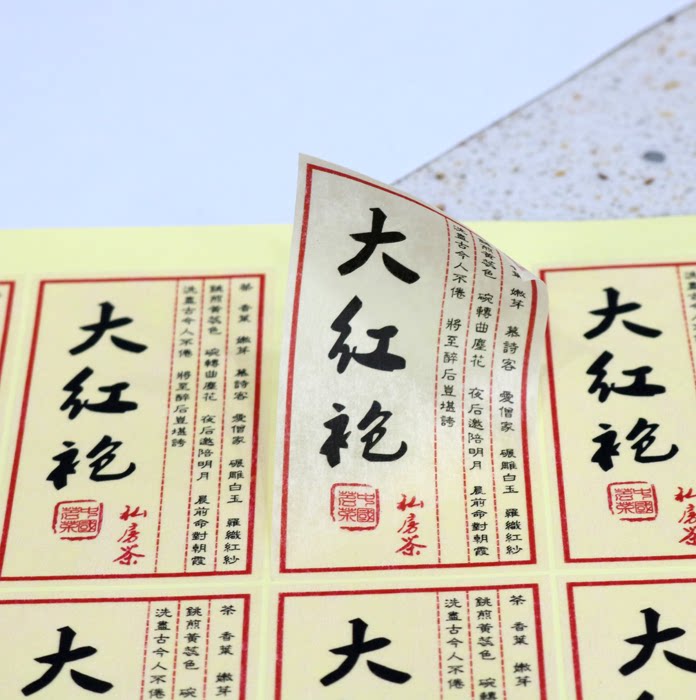 茶 香葉 嫩芽 慕詩客 愛僧家 碾雕白玉 羅織紅紗
銚煎黃蕊色 碗轉曲塵花 夜后邀陪明月 晨前命對朝霞
洗盡古今人不倦 將至醉后豈堪誇
大红袍
私房茶
中國
嫩芽 慕詩客 愛僧家 碾雕白玉 羅織紅紗
銚煎黃蕊色 碗轉曲塵花 夜后邀陪明月 晨前命對朝霞
洗盡古今人不倦 將至醉后豈堪誇
大红袍
私房茶
中國
大红袍
私房茶
中國
茶 香葉 嫩芽
銚煎黃蕊色 碗轉
洗盡古今人不倦
大
茶 香葉 嫩芽
銚煎黃蕊色 碗轉
洗盡古今人不倦
大
大